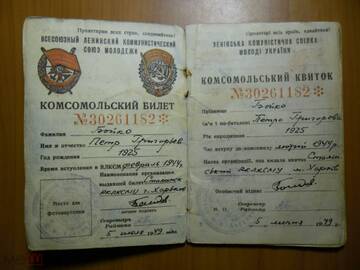 Пролетарии всех стран, соединяйтесь!
ВСЕСОЮЗНЫЙ ЛЕНИНСКИЙ КОММУНИСТИЧЕСКИЙ
СОЮЗ МОЛОДЕЖИ
КОМСОМОЛЬСКИЙ БИЛЕТ
№30261182*
Фамилия Бойко
Имя и отчество Петр Григорьев
Год рождения 1925
Время вступления в ВЛКСМ февраль 1944 г.
Наименование организации,
выдавшей билет Сталинск
г. Харьков
Место для
фотокарточки
Личная подпись
Секретарь
Райкома
5 июля 1949 года
Пролетарі всіх країн, єднайтеся!
ЛЕНІНСЬКА КОМУНІСТИЧНА СПІЛКА
МОЛОДІ УКРАЇНИ
КОМСОМОЛЬСЬКИЙ КВИТОК
№30261182*
Прізвище Бойко
Ім'я і по-батькові Петро Григоров
Рік народження 1925
Час вступу до комсомолу лютий 1944 р.
Назва організації, яка видала квиток Сталін
ський м. Харків
Особистий підпис
Секретар
Райкому
5 липня 1949 р.